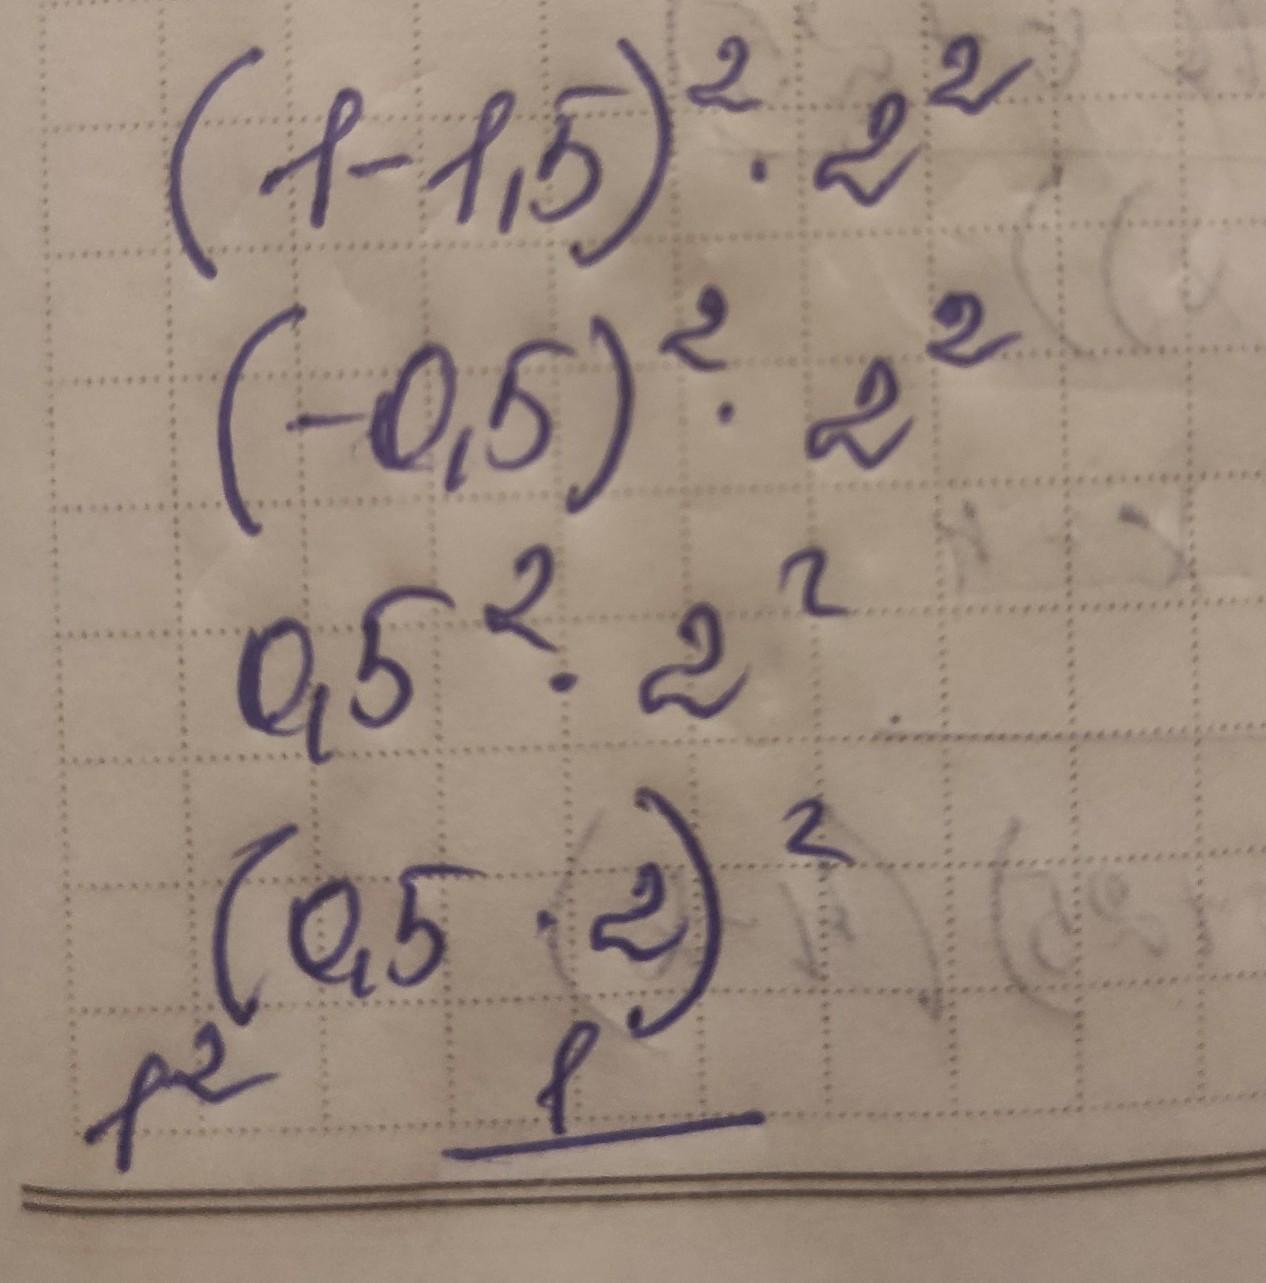 (1-1,5)² · 2²
(-0,5)² · 2²
0,5² · 2²
(0,5 · 2)²
1² 1